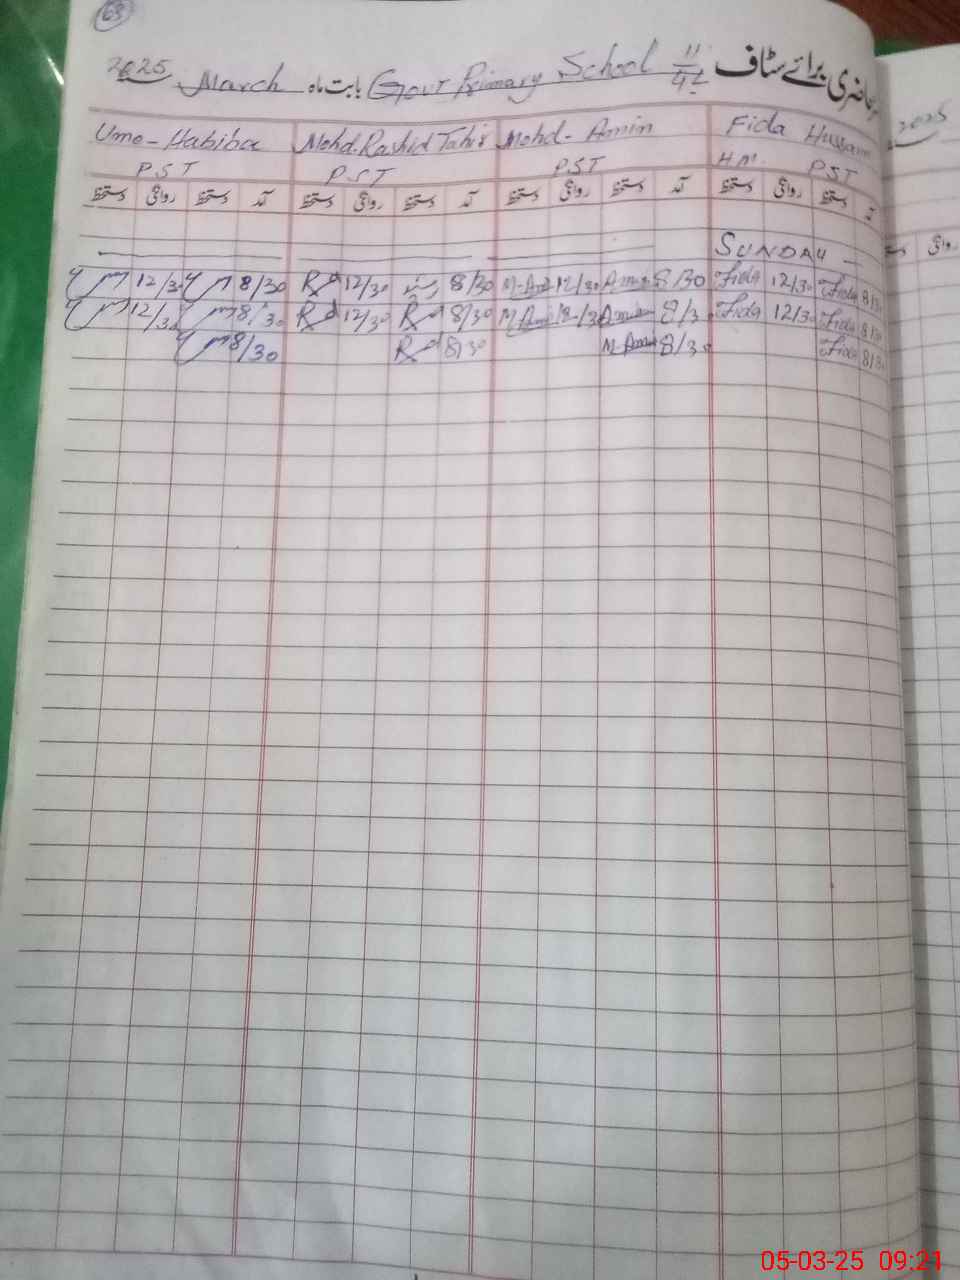 63
2025 March بابت ماہ Govt Primary School 11/4L حاضری برائے سٹاف
2025
Ume-Habiba Mohd.Rashid Tahir Mohd-Amin Fida Hussain
PST PST PST HM. PST
دستخط روانگی دستخط آمد دستخط روانگی دستخط آمد دستخط روانگی دستخط آمد دستخط روانگی دستخط آمد
روانگی
SUNDAY
12/30 8/30 12/30 8/30 M-Amin 12/30 Amin 8/30 Fida 12/30 Fida 8/30
12/30 8/30 12/30 8/30 M Amin 12/30 Amin 8/30 Fida 12/30 Fida 8/30
8/30 8/30 M-Amin 8/30 Fida 8/30
05-03-25 09:21